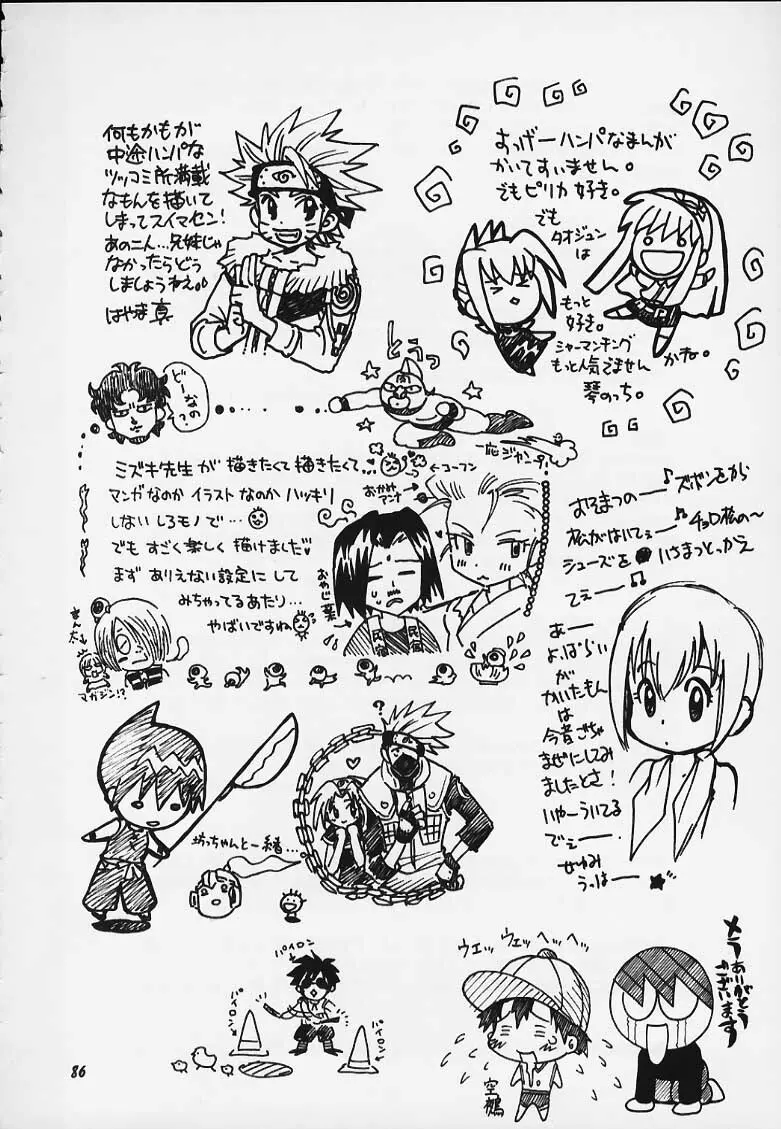 何もかもが
中途ハンパな
ツッコミ所満載
なもんを描いて
しまってスイマセン!
あの二人…兄妹じゃ
なかったらどう
しましょうねえ。
はやま 真
すっげーハンパなまんが
かいてすいません。
でもピリカ好き。
でも
タオジュン
は
もっと
好き。
シャーマンキング
もっと人気でません
かね。
琴のっち。
どーなの?
とうっ
一応ジャンプ。
ミズキ先生が描きたくて描きたくて…
←コーフン
マンガなのかイラストなのかハッキリ
しないしろモノで…
でもすごく楽しく描けました♥
まずありえない設定にして
みちゃってるあたり…
やばいですね
おかみ
アンナ
おやじ
葉
民宿
民宿
きん太
マガジン!?
おそまつの――♪ズボンをから
松がはいてぇ――♬チョロ松の〜
シューズを いちまつとっかえ
てぇ――♫
あ――
よっぱらい
が
かいたもん
は
今昔ごちゃ
まぜにしてみ
ましたとさ!
いやーういてる
でぇ――.
せゆみ
うっはー
?
坊っちゃんと一緒…
パイロン
パイロン
パイロン
ウェッウェッヘッヘッ
空鵺
メラ
ありがとう
ございます
86